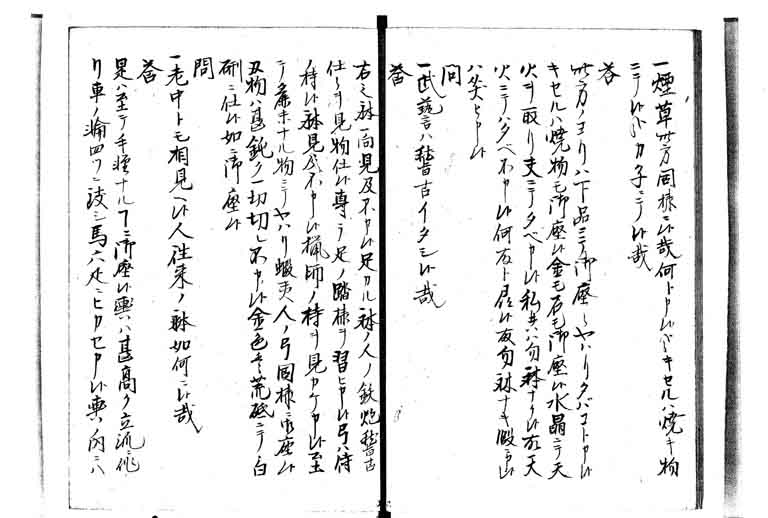 一煙草此方同様ニ候哉何ト申候哉キセルハ焼キ物
ニテ候哉カ子ニテ候哉
答
此方ノヨリハ下品ニテ御座候ヤハリタバコト申候
キセルハ焼物モ御座候金モ石モ御座候水晶ニテ天
火ヲ取リ夫ニテタベ申候私共ハ勿躰ナク候故天
火ニテハタベ不申候何故ト
ハ笑ヒ申候
問
一武芸ハ稽古イタシ候哉
答
右之躰一向見及不申候足カル躰ノ人ノ鉄炮稽古
仕候ヲ見物仕候専ラ足ノ踏様ヲ習ヒ申候弓ハ侍
ノ持候躰見及不申候猟師ノ持ヲ見カケ申候至
テ麁末ナル物ニテヤハリ蝦夷人ノ弓同様ニ御座候
刃物ハ甚鈍ク一切切レ不申候金色モ荒砥ニテ白
研ニ仕候如ニ御座候
問
一老中トモ相見ヘ候人往来ノ躰如何ニ候哉
答
是ハ至テ手軽ナル事ニ御座候輿ハ甚高ク立派ニ作
リ車ノ輪四ツニ諸シ馬六疋ニヒカセ申候輿ノ内ニハ